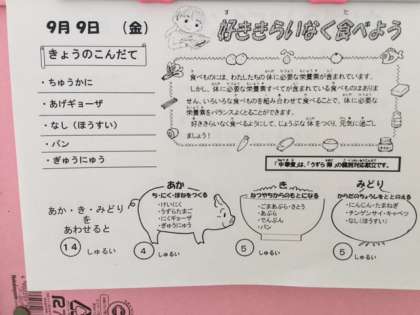 9月9日 (金)
きょうのこんだて
・ちゅうかに
・あげギョーザ
・なし(ほうすい)
・パン
・ぎゅうにゅう
好ききらいなく食べよう
食べものには、わたしたちの体に必要な栄養素が含まれています。
しかし、体に必要な栄養素すべてが含まれている食べものはありま
せん。いろいろな食べものを組み合わせて食べることで、体に必要な
栄養素をバランスよくとることができます。
好ききらいなく食べるようにして、じょうぶな体をつくり、元気に過ごし
ましょう!
「中華煮」は、「うずら卵」の個別対応献立です。
あか・き・みどり
を
あわせると
14 しゅるい
あか
ち・にく・ほねをつくる
・けいにく
・うずらたまご
・にくギョーザ
・ぎゅうにゅう
4 しゅるい
き
ねつやちからのもとになる
・ごまあぶら・さとう
・あぶら
・でんぷん
・パン
5 しゅるい
みどり
からだのちょうしをととのえる
・にんじん・たまねぎ
・チンゲンサイ・キャベツ
・なし(ほうすい)
5 しゅるい